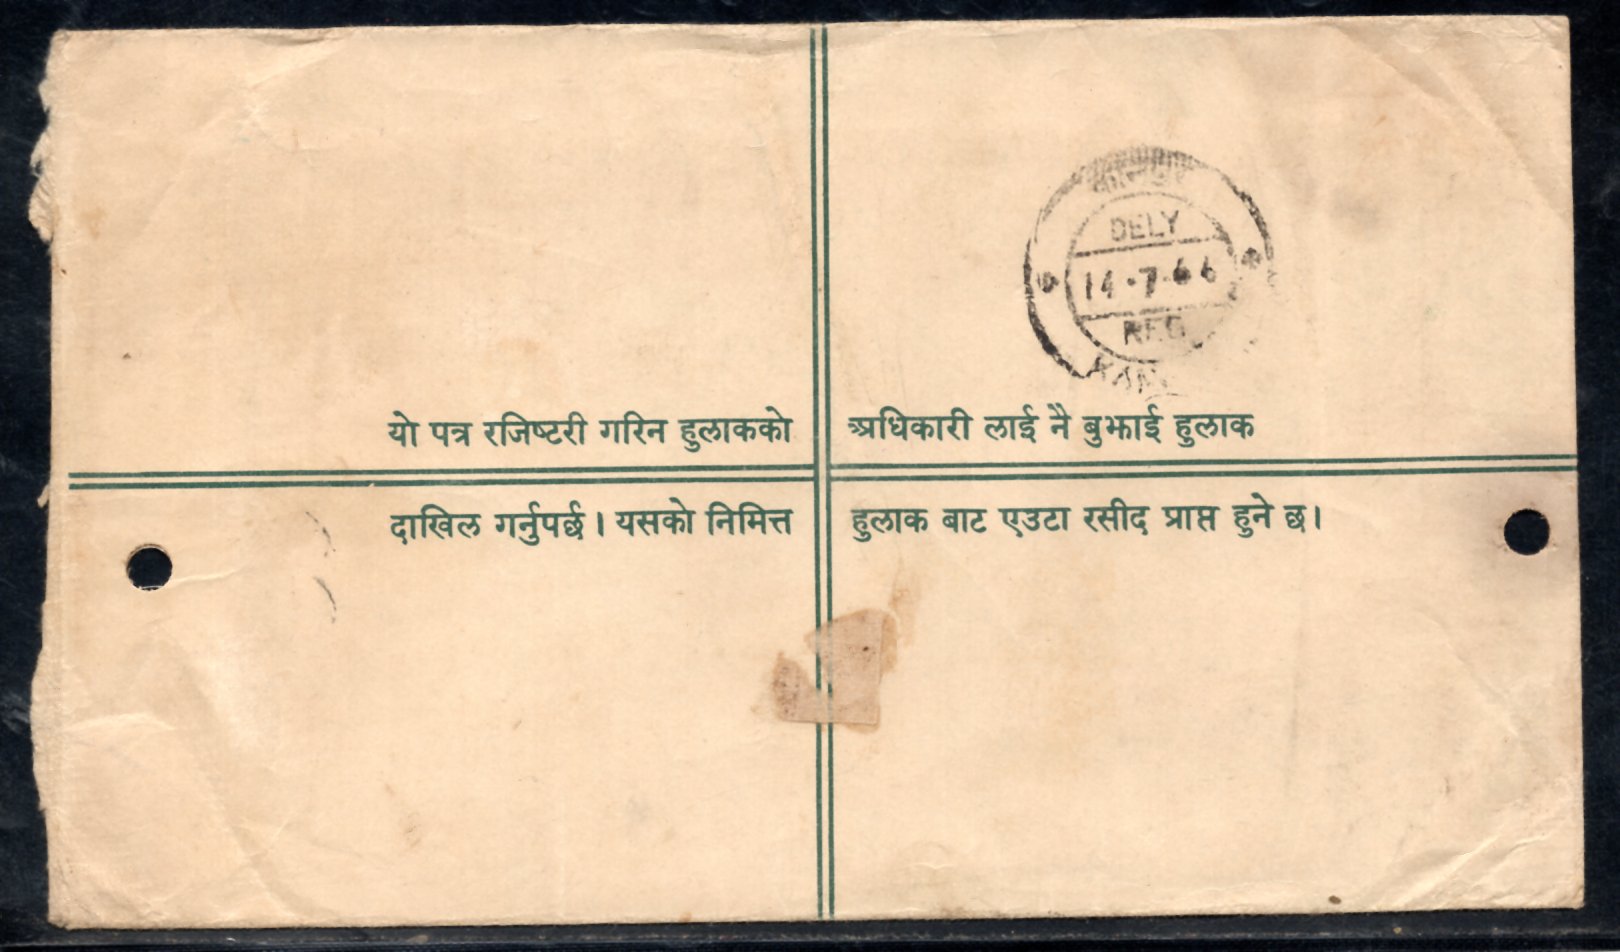 यो पत्र रजिष्टरी गरिन हुलाकको अधिकारी लाई नै बुझाई हुलाक
दाखिल गर्नुपर्छ । यसको निमित्त हुलाक बाट एउटा रसीद प्राप्त हुने छ ।
DELY
14-7-66
REG